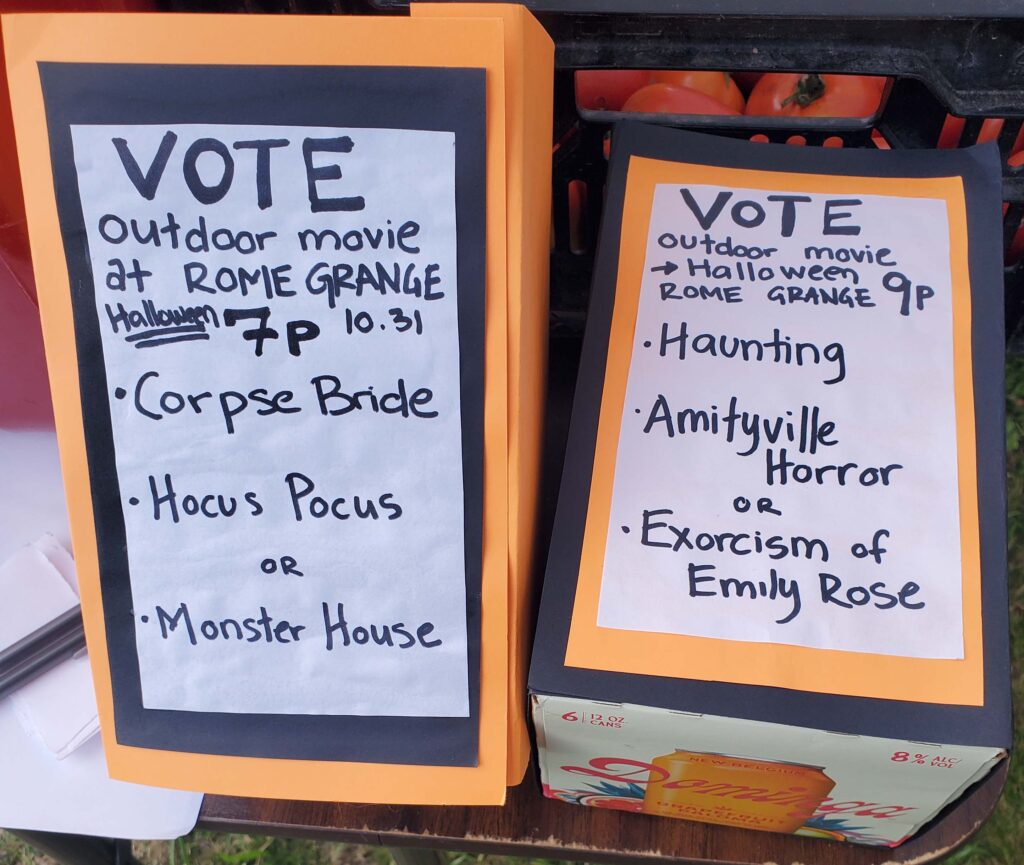 VOTE
outdoor movie
at ROME GRANGE
Halloween 7p 10.31
• Corpse Bride
• Hocus Pocus
OR
• Monster House
VOTE
outdoor movie
→ Halloween 9p
ROME GRANGE
• Haunting
• Amityville
Horror
OR
• Exorcism of
Emily Rose
6 12 OZ
CANS
8% ALC/
VOL
NEW BELGIUM
Dominga
GRAPEFRUIT